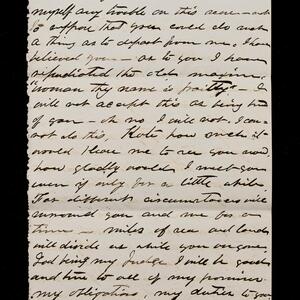 myself any trouble on this score – not
to suppose that you could do such
a thing as to depart from me. I have
believed you – as to you I have
repudiated the old maxim,
"Woman thy name is frailty" – I
will not accept this as being true
of you – oh no I will not, I can
not do this, Kate how much it
would please me to see you now,
how gladly would I meet you
even if only for a little while
Far different circumstances will
surround you and me for a
time – miles of sea and land
will divide us while you are gone.
God being my Judge I will be good
and true to all of my promises
my obligations, my duties to you